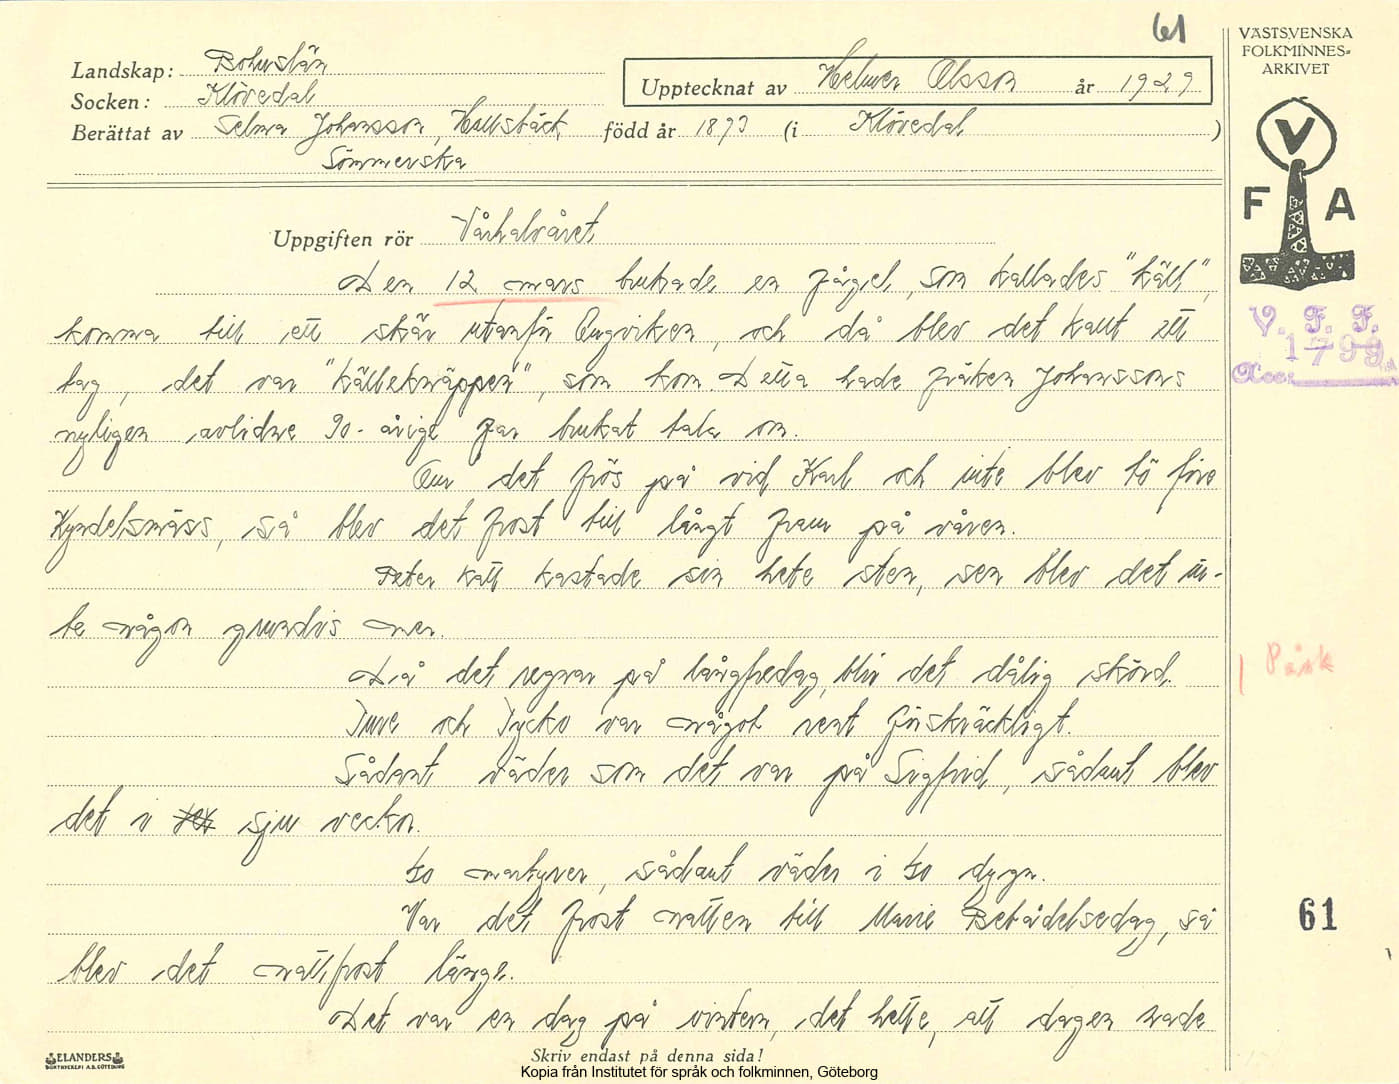 61
VÄSTSVENSKA
FOLKMINNES=
ARKIVET
Landskap: Bohuslän
Upptecknat av Helmer Olsson år 1929
Socken: Klövedal
Berättat av Selma Johansson, Hallsbäck, född år 1893 (i Klövedal)
Sömmerska
V
F A
Uppgiften rör Vårhalvåret
Den 12 mars brukade en fågel, som kallades "käll",
komma till ett skär utanför Ängviken, och då blev det kallt ett
tag, det var "källeknäppen", som kom. Detta hade fröken Johanssons
nyligen avlidne 90-årige far brukat tala om.
Om det frös på vid Karl och inte blev tö före
Kyndelsmäss, så blev det frost till långt fram på våren.
Peter katt kastade sin hete sten, sen blev det in-
te någon grundis mer.
Då det regnar på långfredag, blir det dålig skörd.
Ture och Tycko var något rent förskräckligt.
Sådant väder som det var på Sigfrid, sådant blev
det i sju veckor.
40 martyrer, sådant väder i 40 dygn.
Var det frost natten till Marie Bebådelsedag, så
blev det nattfrost länge.
Det var en dag på vintern, det hette, att dagen hade
V. F. F.
1799
Acc:
Påsk
61
ELANDERS
BOKTRYCKERI A.B. GÖTEBORG
Skriv endast på denna sida!
Kopia från Institutet för språk och folkminnen, Göteborg